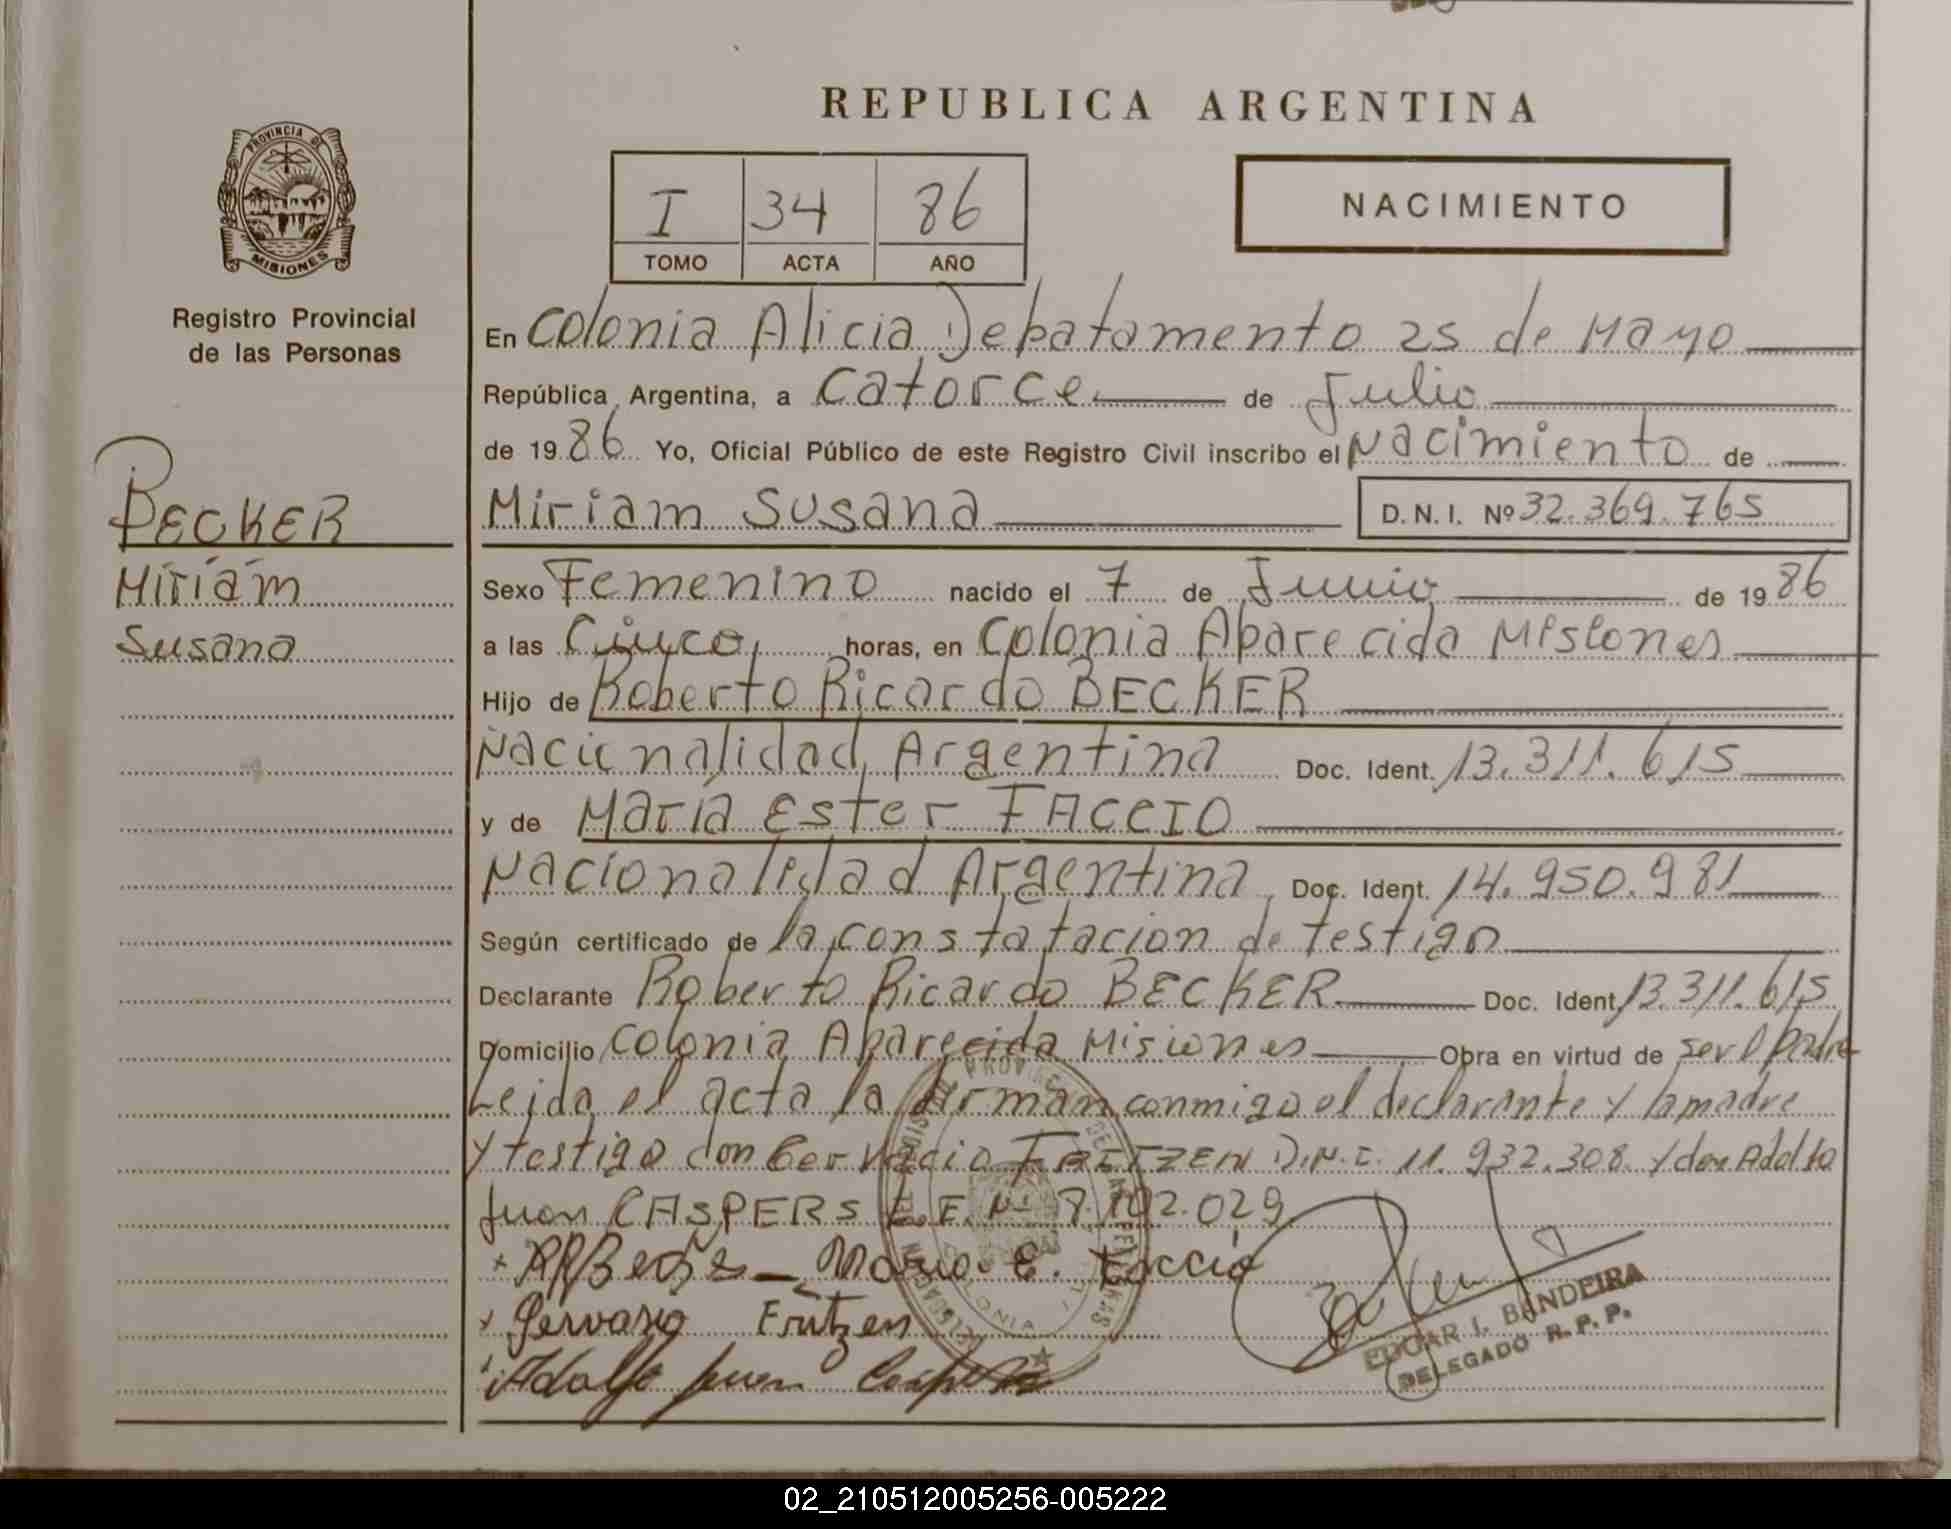 REPUBLICA ARGENTINA
PROVINCIA DE
MISIONES
Registro Provincial
de las Personas
I 34 86
TOMO ACTA AÑO
NACIMIENTO
BECKER
Miriam
Susana
En Colonia Alicia, Depatamento 25 de Mayo
República Argentina, a Catorce de Julio
de 1986 Yo, Oficial Público de este Registro Civil inscribo el Nacimiento de
Miriam Susana D.N.I. Nº 32.369.765
Sexo Femenino nacido el 7 de Junio de 1986
a las Cinco, horas, en Colonia Aparecida Misiones
Hijo de Roberto Ricardo BECKER
Nacionalidad Argentina Doc. Ident. 13.311.615
y de María Ester FACCIO
Nacionalidad Argentina Doc. Ident. 14.950.981
Según certificado de la constatacion de testigo
Declarante Roberto Ricardo BECKER Doc. Ident. 13.311.615
Domicilio Colonia Aparecida Misiones Obra en virtud de ser el padre
Leida el acta la firman conmigo el declarante y la madre
y testigo don Gervacio FRITZEN D.N.I. 11.932.308. y don Adolfo
Juan CASPERS L.E. Nº 8.102.029
Maria E. Faccio
Gervasio Fritzen
Adolfo Juan Caspers
EDGAR I. BANDEIRA
DELEGADO R.P.P.
02_210512005256-005222